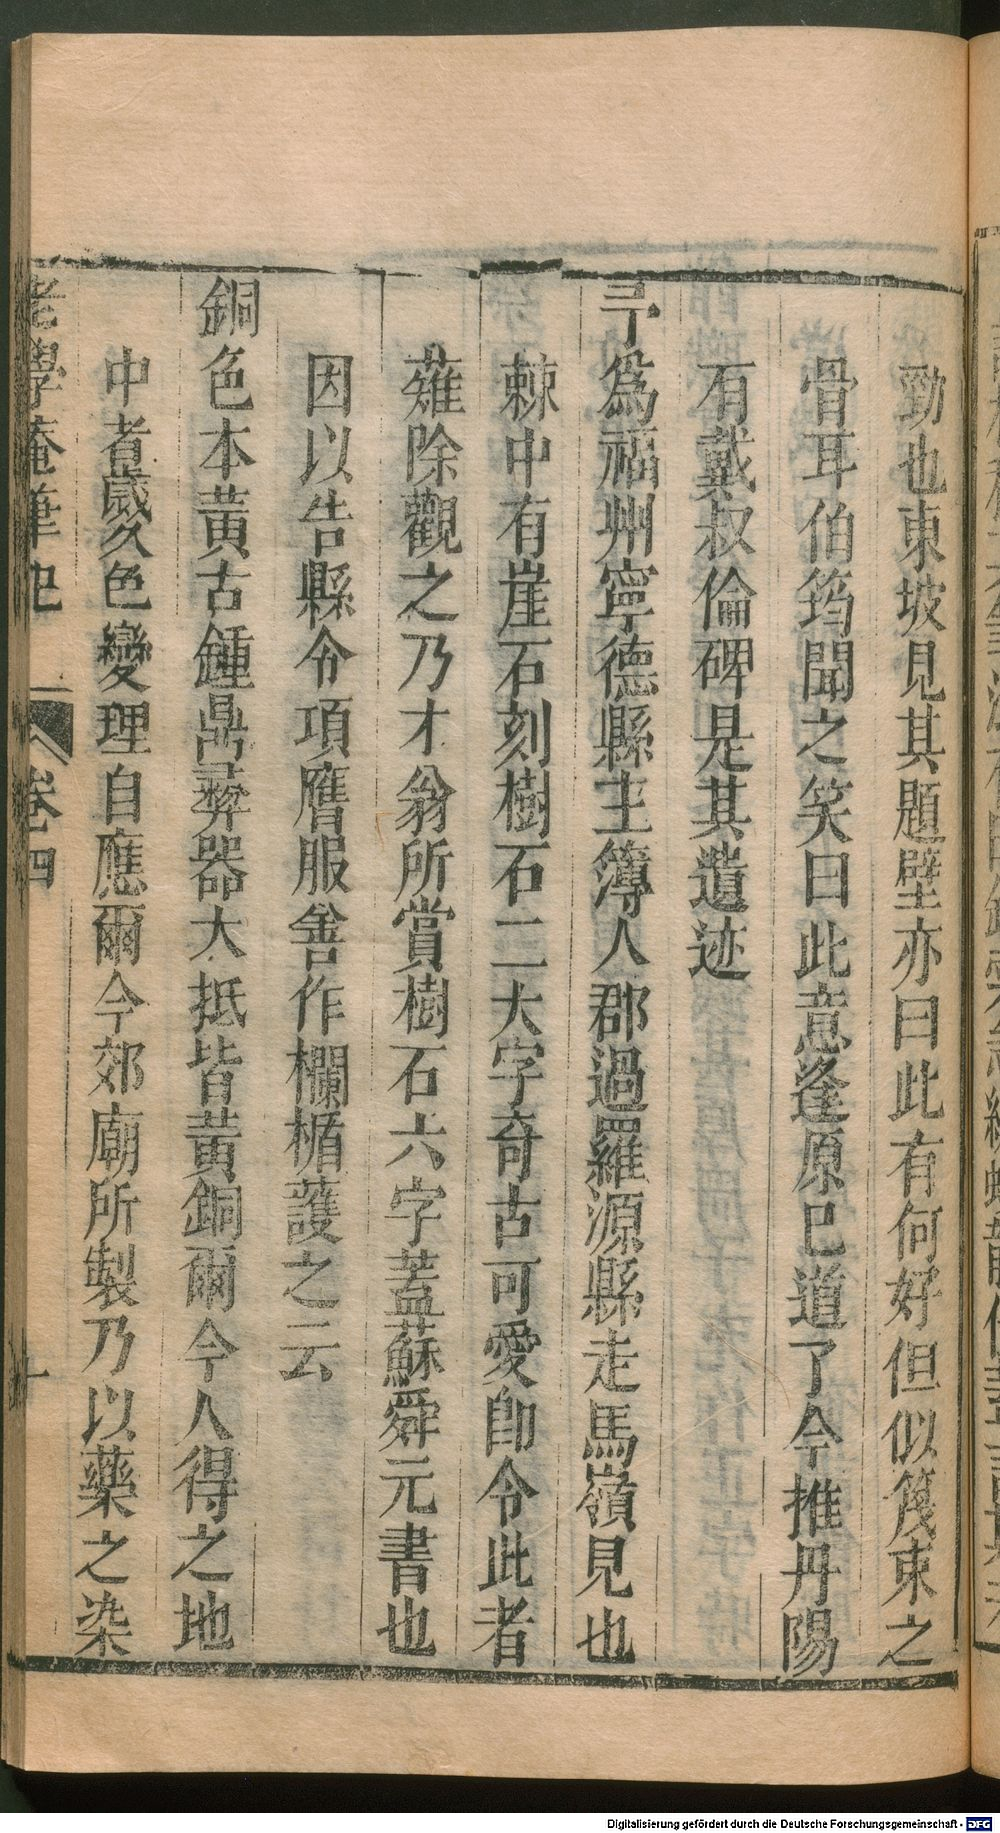 勁也東坡見其題壁亦曰此有何好但似篾束之
骨耳伯筠聞之笑曰此意逢原已道了今推丹陽
有戴叔倫碑是其遺迹
予爲福州寧德縣主簿人郡過羅源縣走馬嶺見也
棘中有崖石刻樹石二大字奇古可愛卽令此者
薙除觀之乃才翁所賞樹石六字蓋蘇舜元書也
因以告縣令項膺服善作欄楯護之云
銅色本黃古鍾鼎彞器大抵皆黃銅爾今人得之地
中者歲久色變理自應爾今郊廟所製乃以藥之染
老學庵筆記 卷四 十
Digitalisierung gefördert durch die Deutsche Forschungsgemeinschaft - DFG